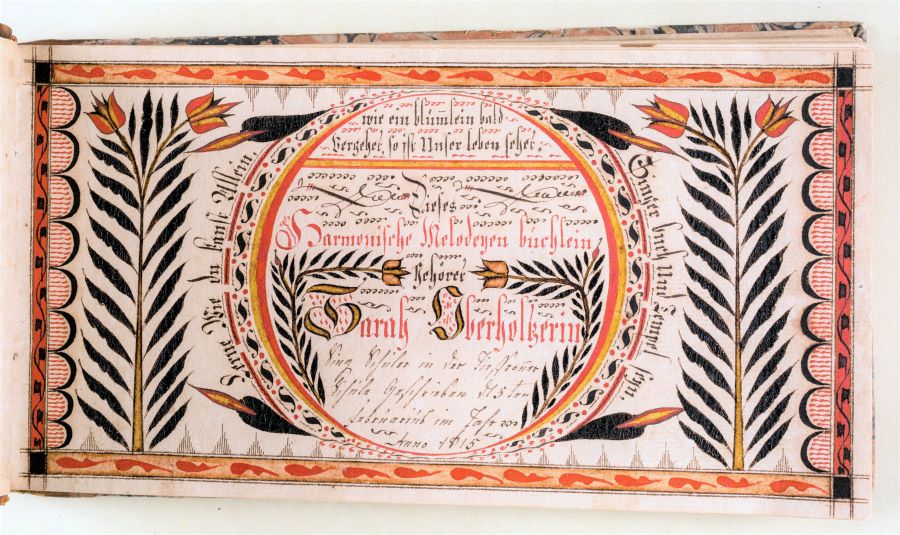 wie ein blümlein bald
Vergehet, so ist Unser leben sehet.
Dieses
Harmonische Melodeyen büchlein
Gehöret
Sarah Oberholtzerin
Sing Schüler in der
Schule Geschrieben d 15ten
im Jahr
Anno 1815
Lerne Wie du kanst Allein
Singer buch Und Tempel seyn.